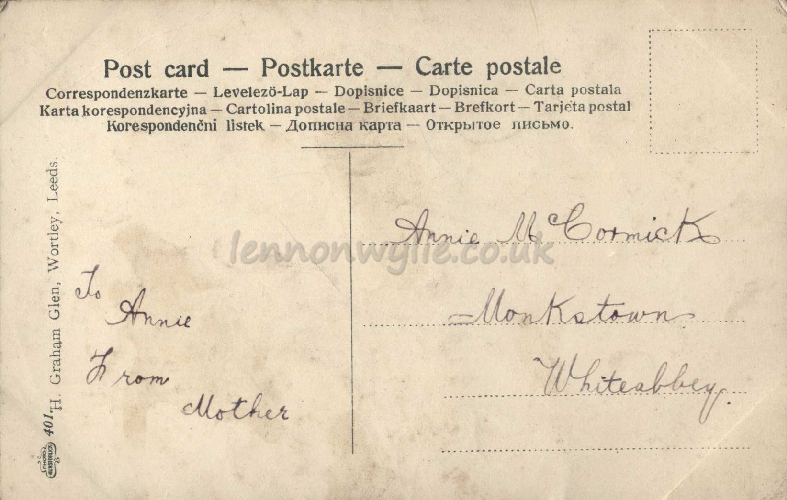 Post card — Postkarte — Carte postale
Correspondenzkarte — Levelezö-Lap — Dopisnice — Dopisnica — Carta postala
Karta korespondencyjna — Cartolina postale — Briefkaart — Brefkort — Tarjeta postal
Korespondenční lístek — Дописна карта — Открытое письмо.
H. Graham Glen, Wortley, Leeds.
401
lennonwylie.co.uk
To
Annie
From
Mother
Annie McCormick
Monkstown
Whiteabbey.